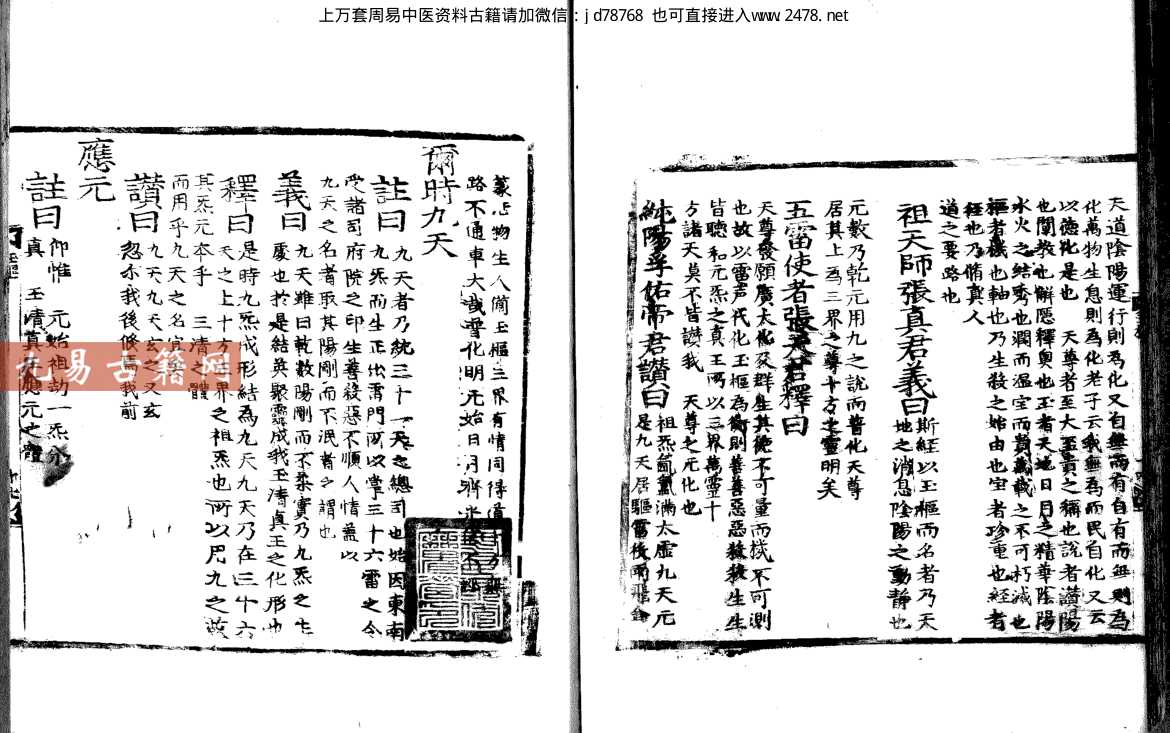 上万套周易中医资料古籍请加微信:jd78768 也可直接进入www.2478.net
天道陰陽運行則為化又自無而有自有而無則為
化萬物生息則為化老子云我無為而民自化又云
以德化是也 天尊者至大至貴之稱也說者讚陽
也闡教也解隱釋奧也玉者天地日月之精華陰陽
水火之結秀也潤而温宝而貴載之不可朽滅也
樞者機也軸也乃生殺之始由也宝者珍重也經者
經也乃脩真人
道之要路也
祖天師張真君義曰
斯經以玉樞而名者乃天
地之消息陰陽之動静也
元數乃乾元用九之說而普化天尊
居其上為三界之尊十方之靈明矣
五雷使者張天君釋曰
天尊發願廣大化及群生其德不可量而機不可測
也故以雷声代化玉樞為衡則善善惡惡殺殺生生
皆聽和元炁之真王所以三界萬靈十
方諸天莫不皆讚我 天尊之元化也
純陽孚佑帝君讚曰
祖炁氤氳滿太虛九天元
是九天居驅雷後雨飛金
篆 物生人備玉樞三界有情同得道 方無
路不通車大哉雷化明元始日月齊
爾時九天
註曰
九天者乃統三十一天之總司也始因東南
九炁而生正出雷門所以掌三十六雷之令
受諸司府院之印生善殺惡不順人情蓋以
九天之名者取其陽剛而不泯者之謂也
義曰
九天雖曰乾數陽剛而不柔實乃九炁之
慶也於是結英聚靈成我玉清真王之化形也
釋曰
是時九炁成形結為九天九天乃在三十六
天之上十方三界之祖炁也所以用九之故
其炁元本乎 三清之體
而用乎九天之名宜
讚曰
九天九天玄之又玄
忽尒我後倏焉我前
應元
註曰
仰惟 元始祖劫一炁分
真 玉清真 應元之體
九易古籍网